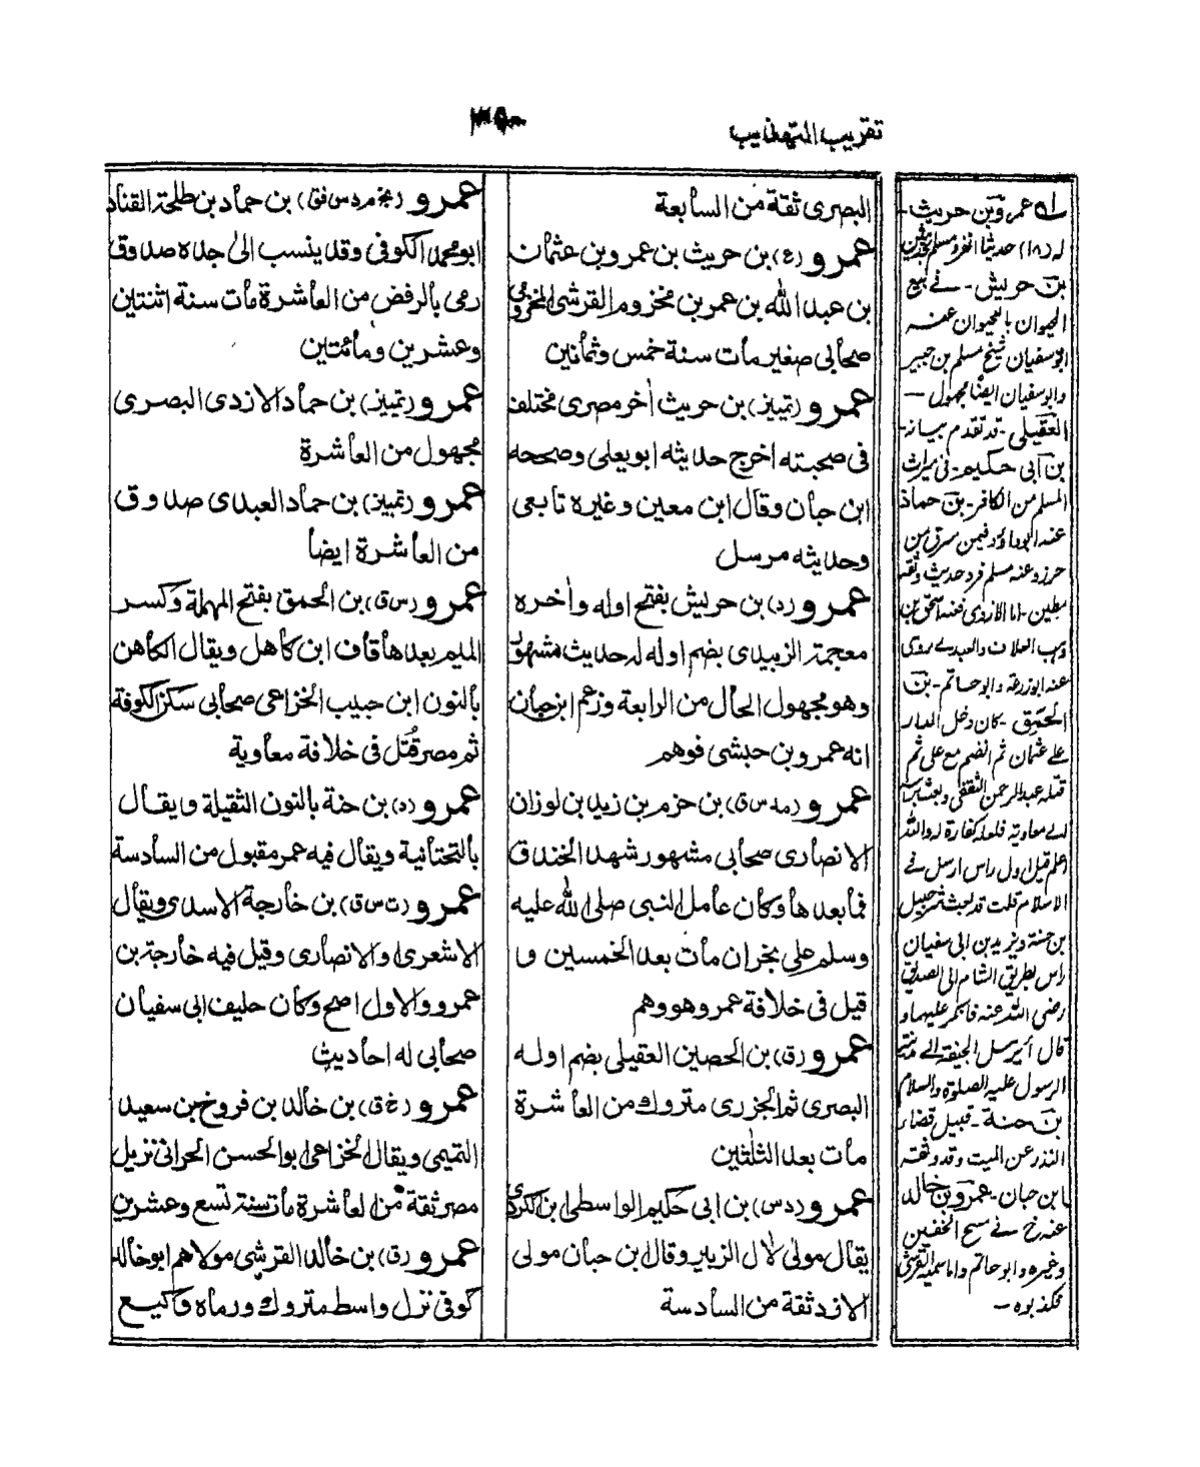 تقريب التهذيب
٣٥٠
البصرى ثقة من السابعة
عمرو (ع) بن حريث بن عمرو بن عثمان
بن عبد الله بن عمر بن مخزوم القرشى المخزومى
صحابى صغير مات سنة خمس وثمانين
عمرو (تمييز) بن حريث اٰخر مصرى مختلف
فى صحبته اخرج حديثه ابو يعلى وصححه
ابن حبان وقال ابن معين وغيره تابعى
وحديثه مرسل
عمرو (د) بن حريش بفتح اوله واٰخره
معجمة الزبيدى بضم اوله له حديث مشهور
وهو مجهول الحال من الرابعة وزعم ابن حبان
انه عمرو بن حبشى فوهم
عمرو (مد س ق) بن حزم بن زيد بن لوزان
الانصارى صحابى مشهور شهد الخندق
فما بعدها وكان عامل النبى صلى الله عليه
وسلم على نجران مات بعد الخمسين و
قيل فى خلافة عمر وهو وهم
عمرو (ق) بن الحصين العقيلى بضم اوله
البصرى ثم الجزرى متروك من العاشرة
مات بعد الثلٰثين
عمرو (د س) بن ابى حكيم الواسطى ابن الكردى
يقال مولى لاٰل الزبير وقال ابن حبان مولى
الازد ثقة من السادسة
عمرو (بخ م د س فق) بن حماد بن طلحة القناد
ابو محمد الكوفى وقد ينسب الىٰ جده صدوق
رمى بالرفض من العاشرة مات سنة اثنتين
وعشرين ومائتين
عمرو (تمييز) بن حماد الازدى البصرى
مجهول من العاشرة
عمرو (تمييز) بن حماد العبدى صدوق
من العاشرة ايضاً
عمرو (س ق) بن الحمق بفتح المهملة وكسر
الميم بعدها قاف ابن كاهل ويقال الكاهن
بالنون ابن حبيب الخزاعى صحابى سكن الكوفة
ثم مصر قُتل فى خلافة معاوية
عمرو (ه) بن حنة بالنون الثقيلة ويقال
بالتحتانية ويقال فيه عمر مقبول من السادسة
عمرو (ت س ق) بن خارجة الاسدى ويقال
الاشعرى والانصارى وقيل فيه خارجة بن
عمرو والاول اصح وكان حليف ابى سفيان
صحابى له احاديث
عمرو (خ ق) بن خالد بن فروخ بن سعيد
التميمى ويقال الخزاعى ابو الحسن الحرانى نزيل
مصر ثقة من العاشرة مات سنة تسع وعشرين
عمرو (ق) بن خالد القرشى مولاهم ابو خالد
كوفى نزل واسط متروك ورماه وكيع
له عمرو بن حريث -
له (١٨) حديثا انفرد مسلم بحديثين
بن حريش - فے بيع
الحيوان بالحيوان عنه
ابو سفيان شيخ مسلم بن جبير
وابو سفيان ايضًا مجهول -
العقيلى - قد تقدم بيانه -
بن ابى حكيم - فى ميراث
المسلم من الكافر - بن حماد
عنه ابو داؤد فيمن سرق من
حرز وعنه مسلم فرد حديث وثقه
مطين - اما الازدى فعنه اسحق بن
وهب العلاف والعبدے روى
عنه ابو زرعة وابو حاتم - بن
الحمق - كان دخل الدار
علے عثمان ثم انضم مع على ثم
قتله عبد الرحمن الثقفى وبعث براسه
الے معاوية فلعله كفارة له والله
اعلم قيل اول راس ارسل فے
الاسلام قلت قد بعث شرحبيل
بن حسنة ويزيد بن ابى سفيان
راس بطريق الشام الى الصديق
رضى الله عنه فانكر عليهما و
قال أيرسل الجيفة الے مدينة
الرسول عليه الصلوة والسلام
بن حنة - قبيل قضاء
النذر عن الميت وقد وثقه
ابن حبان - عمرو بن خالد
عنه خ فے مسح الخفين
وغيره وابو حاتم واما سميه القرشى
فكذبوه -